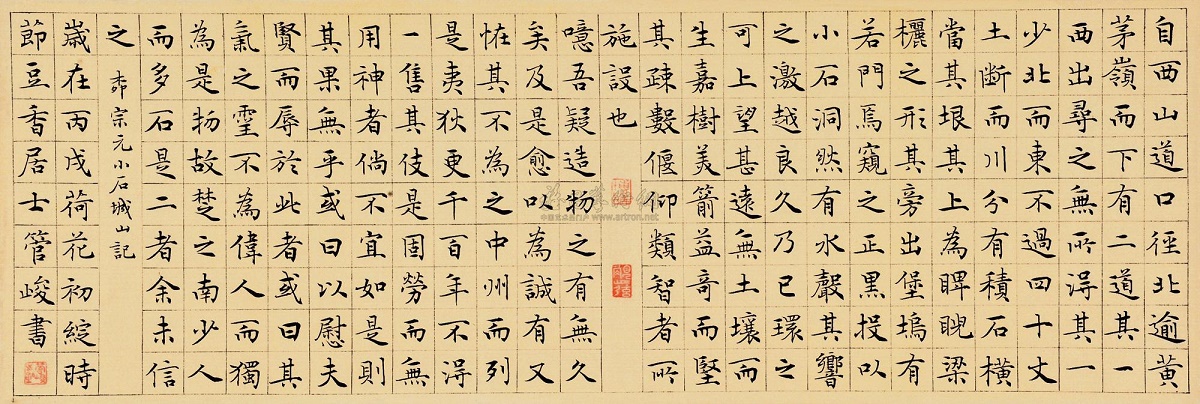 自西山道口徑北逾黃
茅嶺而下有二道其一
西出尋之無所得其一
少北而東不過四十丈
土斷而川分有積石橫
當其垠其上為睥睨梁
欐之形其旁出堡塢有
若門焉窺之正黑投以
小石洞然有水聲其響
之激越良久乃已環之
可上望甚遠無土壤而
生嘉樹美箭益奇而堅
其疎數偃仰類智者所
施設也
噫吾疑造物之有無久
矣及是愈以為誠有又
怪其不為之中州而列
是夷狄更千百年不得
一售其伎是固勞而無
用神者倘不宜如是則
其果無乎或曰以慰夫
賢而辱於此者或曰其
氣之靈不為偉人而獨
為是物故楚之南少人
而多石是二者余未信
之 柳宗元小石城山記
歲在丙戌荷花初綻時
節豆香居士管峻書
www.artron.net